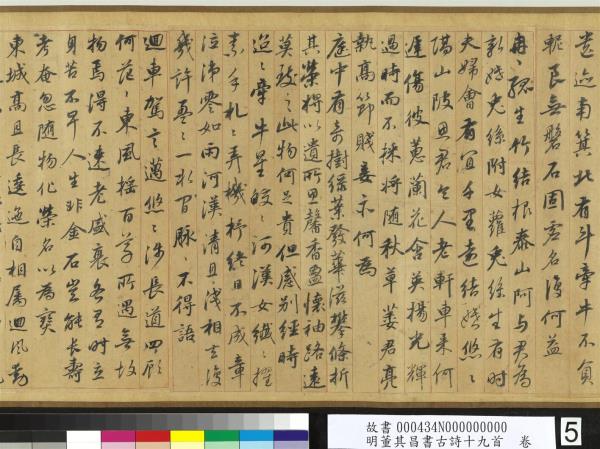 遺迹南箕北有斗牽牛不負
軛良無磐石固虛名復何益
冉々孤生竹結根泰山阿與君為
新婚兔絲附女蘿兔絲生有時
夫婦會有宜千里遠結婚悠々
隔山陂思君令人老軒車來何
遲傷彼蕙蘭花含英揚光輝
過時而不採將隨秋草萎君亮
執高節賤妾亦何為
庭中有奇樹綠葉發華滋攀條折
其榮將以遺所思馨香盈懷袖路遠
莫致之此物何足貴但感別經時
迢々牽牛星皎々河漢女纖々擢
素手札々弄機杼終日不成章
泣涕零如雨河漢清且淺相去復
幾許盈々一水間脈々不得語
迴車駕言邁悠々涉長道四顧
何茫々東風搖百草所遇無故
物焉得不速老盛衰各有時立
身苦不早人生非金石豈能長壽
考奄忽隨物化榮名以為寶
東城高且長逶迤自相屬迴風動
故書 000434N000000000
明董其昌書古詩十九首 卷
5